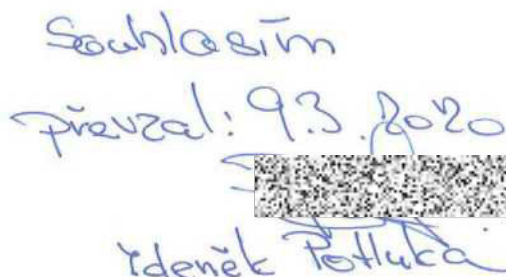 Souhlasím
převzal: 9.3.2020
Zdeněk Potluka